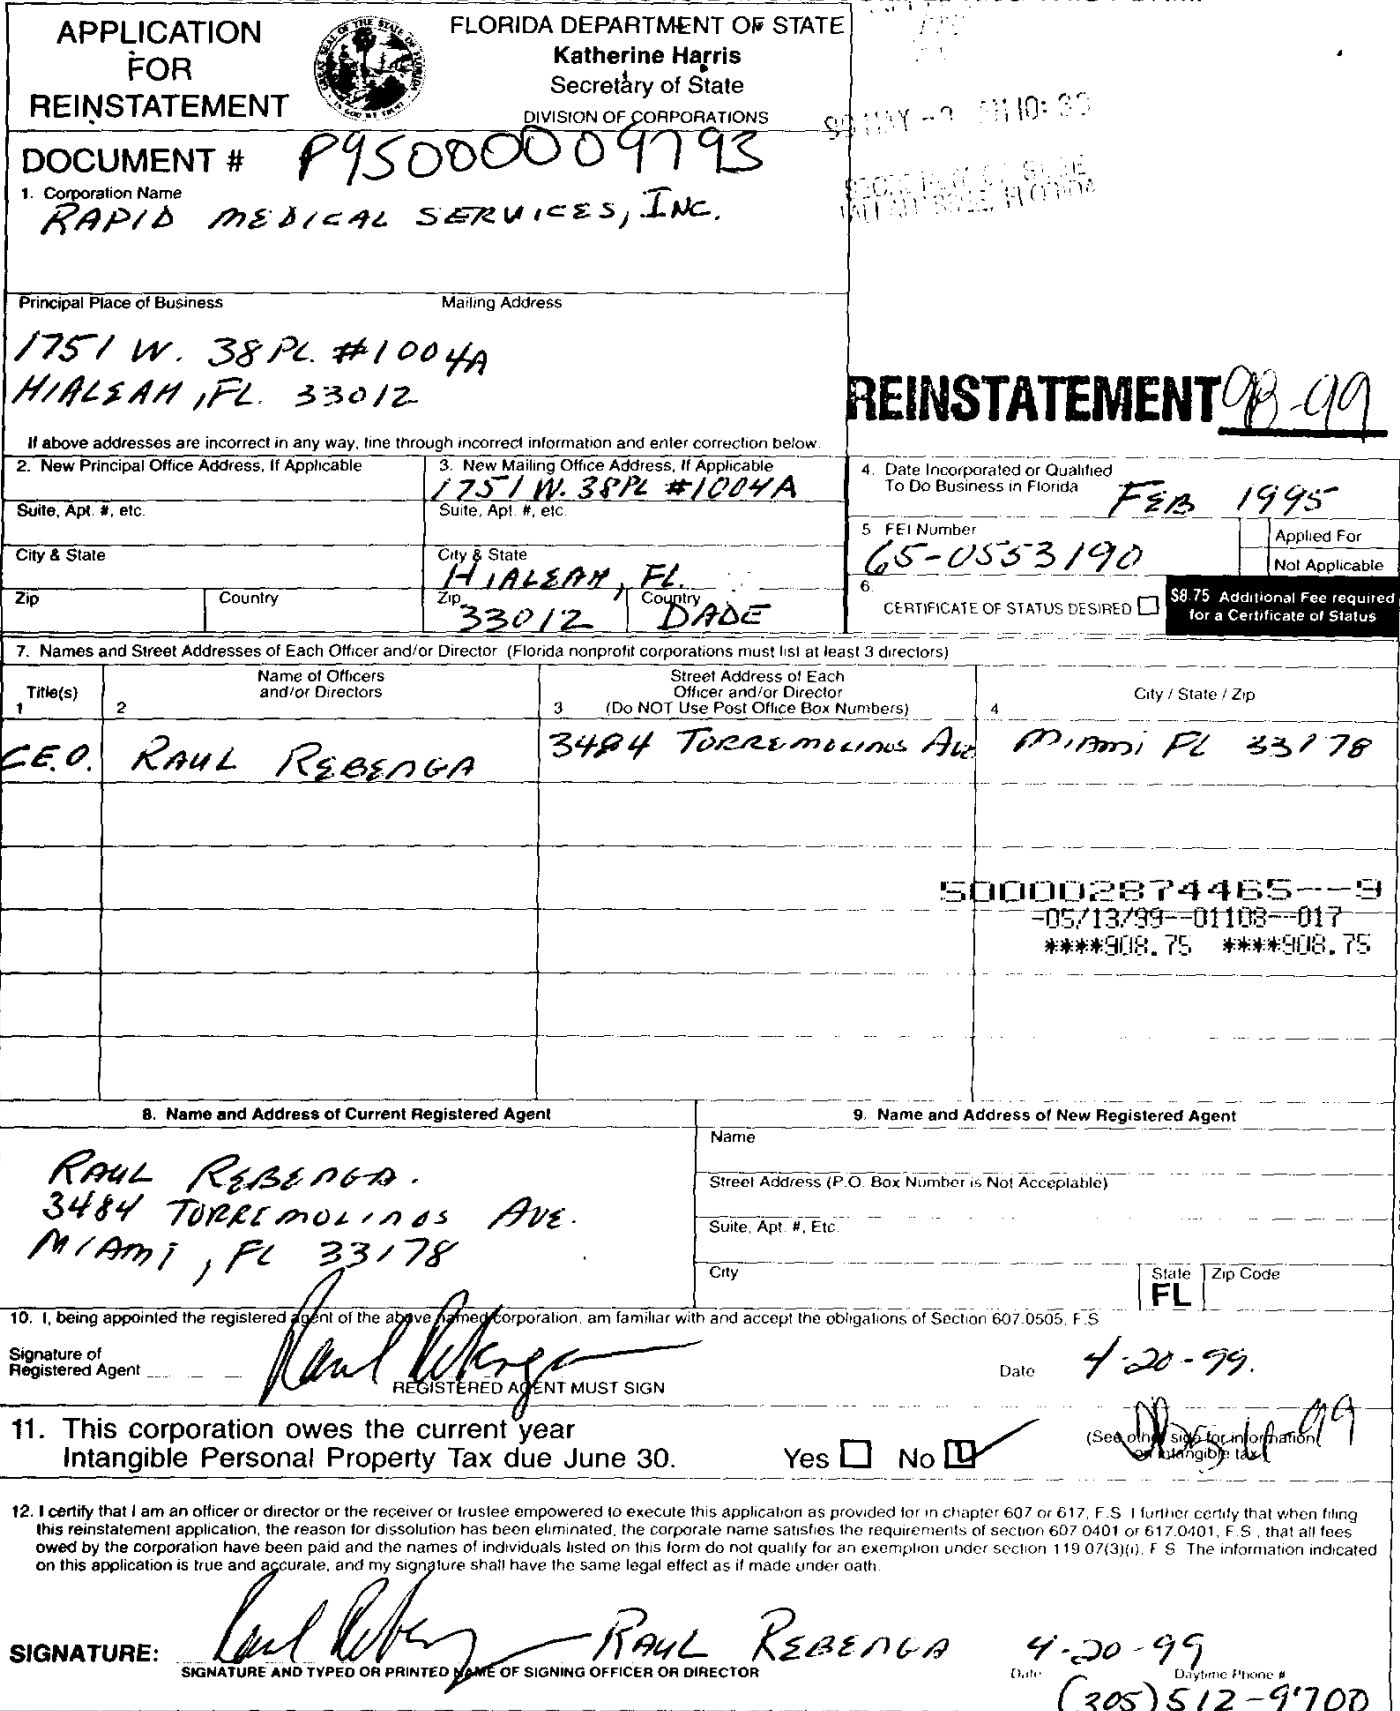 APPLICATION
FOR
REINSTATEMENT
FLORIDA DEPARTMENT OF STATE
Katherine Harris
Secretary of State
DIVISION OF CORPORATIONS
DOCUMENT # P95000009793
1. Corporation Name
RAPID MEDICAL SERVICES, INC.
Principal Place of Business Mailing Address
1751 W. 38 PL. #1004A
HIALEAH, FL. 33012
REINSTATEMENT 98-99
If above addresses are incorrect in any way, line through incorrect information and enter correction below.
2. New Principal Office Address, If Applicable
Suite, Apt. #, etc.
City & State
Zip Country
3. New Mailing Office Address, If Applicable
1751 W. 38 PL #1004A
Suite, Apt. #, etc.
City & State
HIALEAH, FL.
Zip Country
33012 DADE
4. Date Incorporated or Qualified
To Do Business in Florida
FEB 1995
5 FEI Number
65-0553190
Applied For
Not Applicable
6.
CERTIFICATE OF STATUS DESIRED
$8.75 Additional Fee required
for a Certificate of Status
7. Names and Street Addresses of Each Officer and/or Director (Florida nonprofit corporations must list at least 3 directors)
Title(s)
1
Name of Officers
and/or Directors
2
Street Address of Each
Officer and/or Director
3 (Do NOT Use Post Office Box Numbers)
City / State / Zip
4
C.E.O. RAUL REBENGA 3484 TORREMOLINOS AVE MIAMI FL 33178
500002874465--9
-05/13/99--01108--017
****908.75 ****908.75
8. Name and Address of Current Registered Agent
RAUL REBENGA.
3484 TORREMOLINOS AVE.
MIAMI, FL 33178
9. Name and Address of New Registered Agent
Name
Street Address (P.O. Box Number is Not Acceptable)
Suite, Apt. #, Etc.
City State Zip Code
FL
10. I, being appointed the registered agent of the above named corporation, am familiar with and accept the obligations of Section 607.0505, F.S
Signature of
Registered Agent Raul Rebenga Date 4-20-99.
REGISTERED AGENT MUST SIGN
11. This corporation owes the current year
Intangible Personal Property Tax due June 30. Yes No
(See other side for information
on intangible tax)
12. I certify that I am an officer or director or the receiver or trustee empowered to execute this application as provided for in chapter 607 or 617, F.S I further certify that when filing
this reinstatement application, the reason for dissolution has been eliminated, the corporate name satisfies the requirements of section 607 0401 or 617.0401, F.S., that all fees
owed by the corporation have been paid and the names of individuals listed on this form do not qualify for an exemption under section 119 07(3)(i), F S The information indicated
on this application is true and accurate, and my signature shall have the same legal effect as if made under oath.
SIGNATURE: Raul Rebenga RAUL REBENGA 4-20-99
SIGNATURE AND TYPED OR PRINTED NAME OF SIGNING OFFICER OR DIRECTOR Date Daytime Phone #
(305) 512-9700